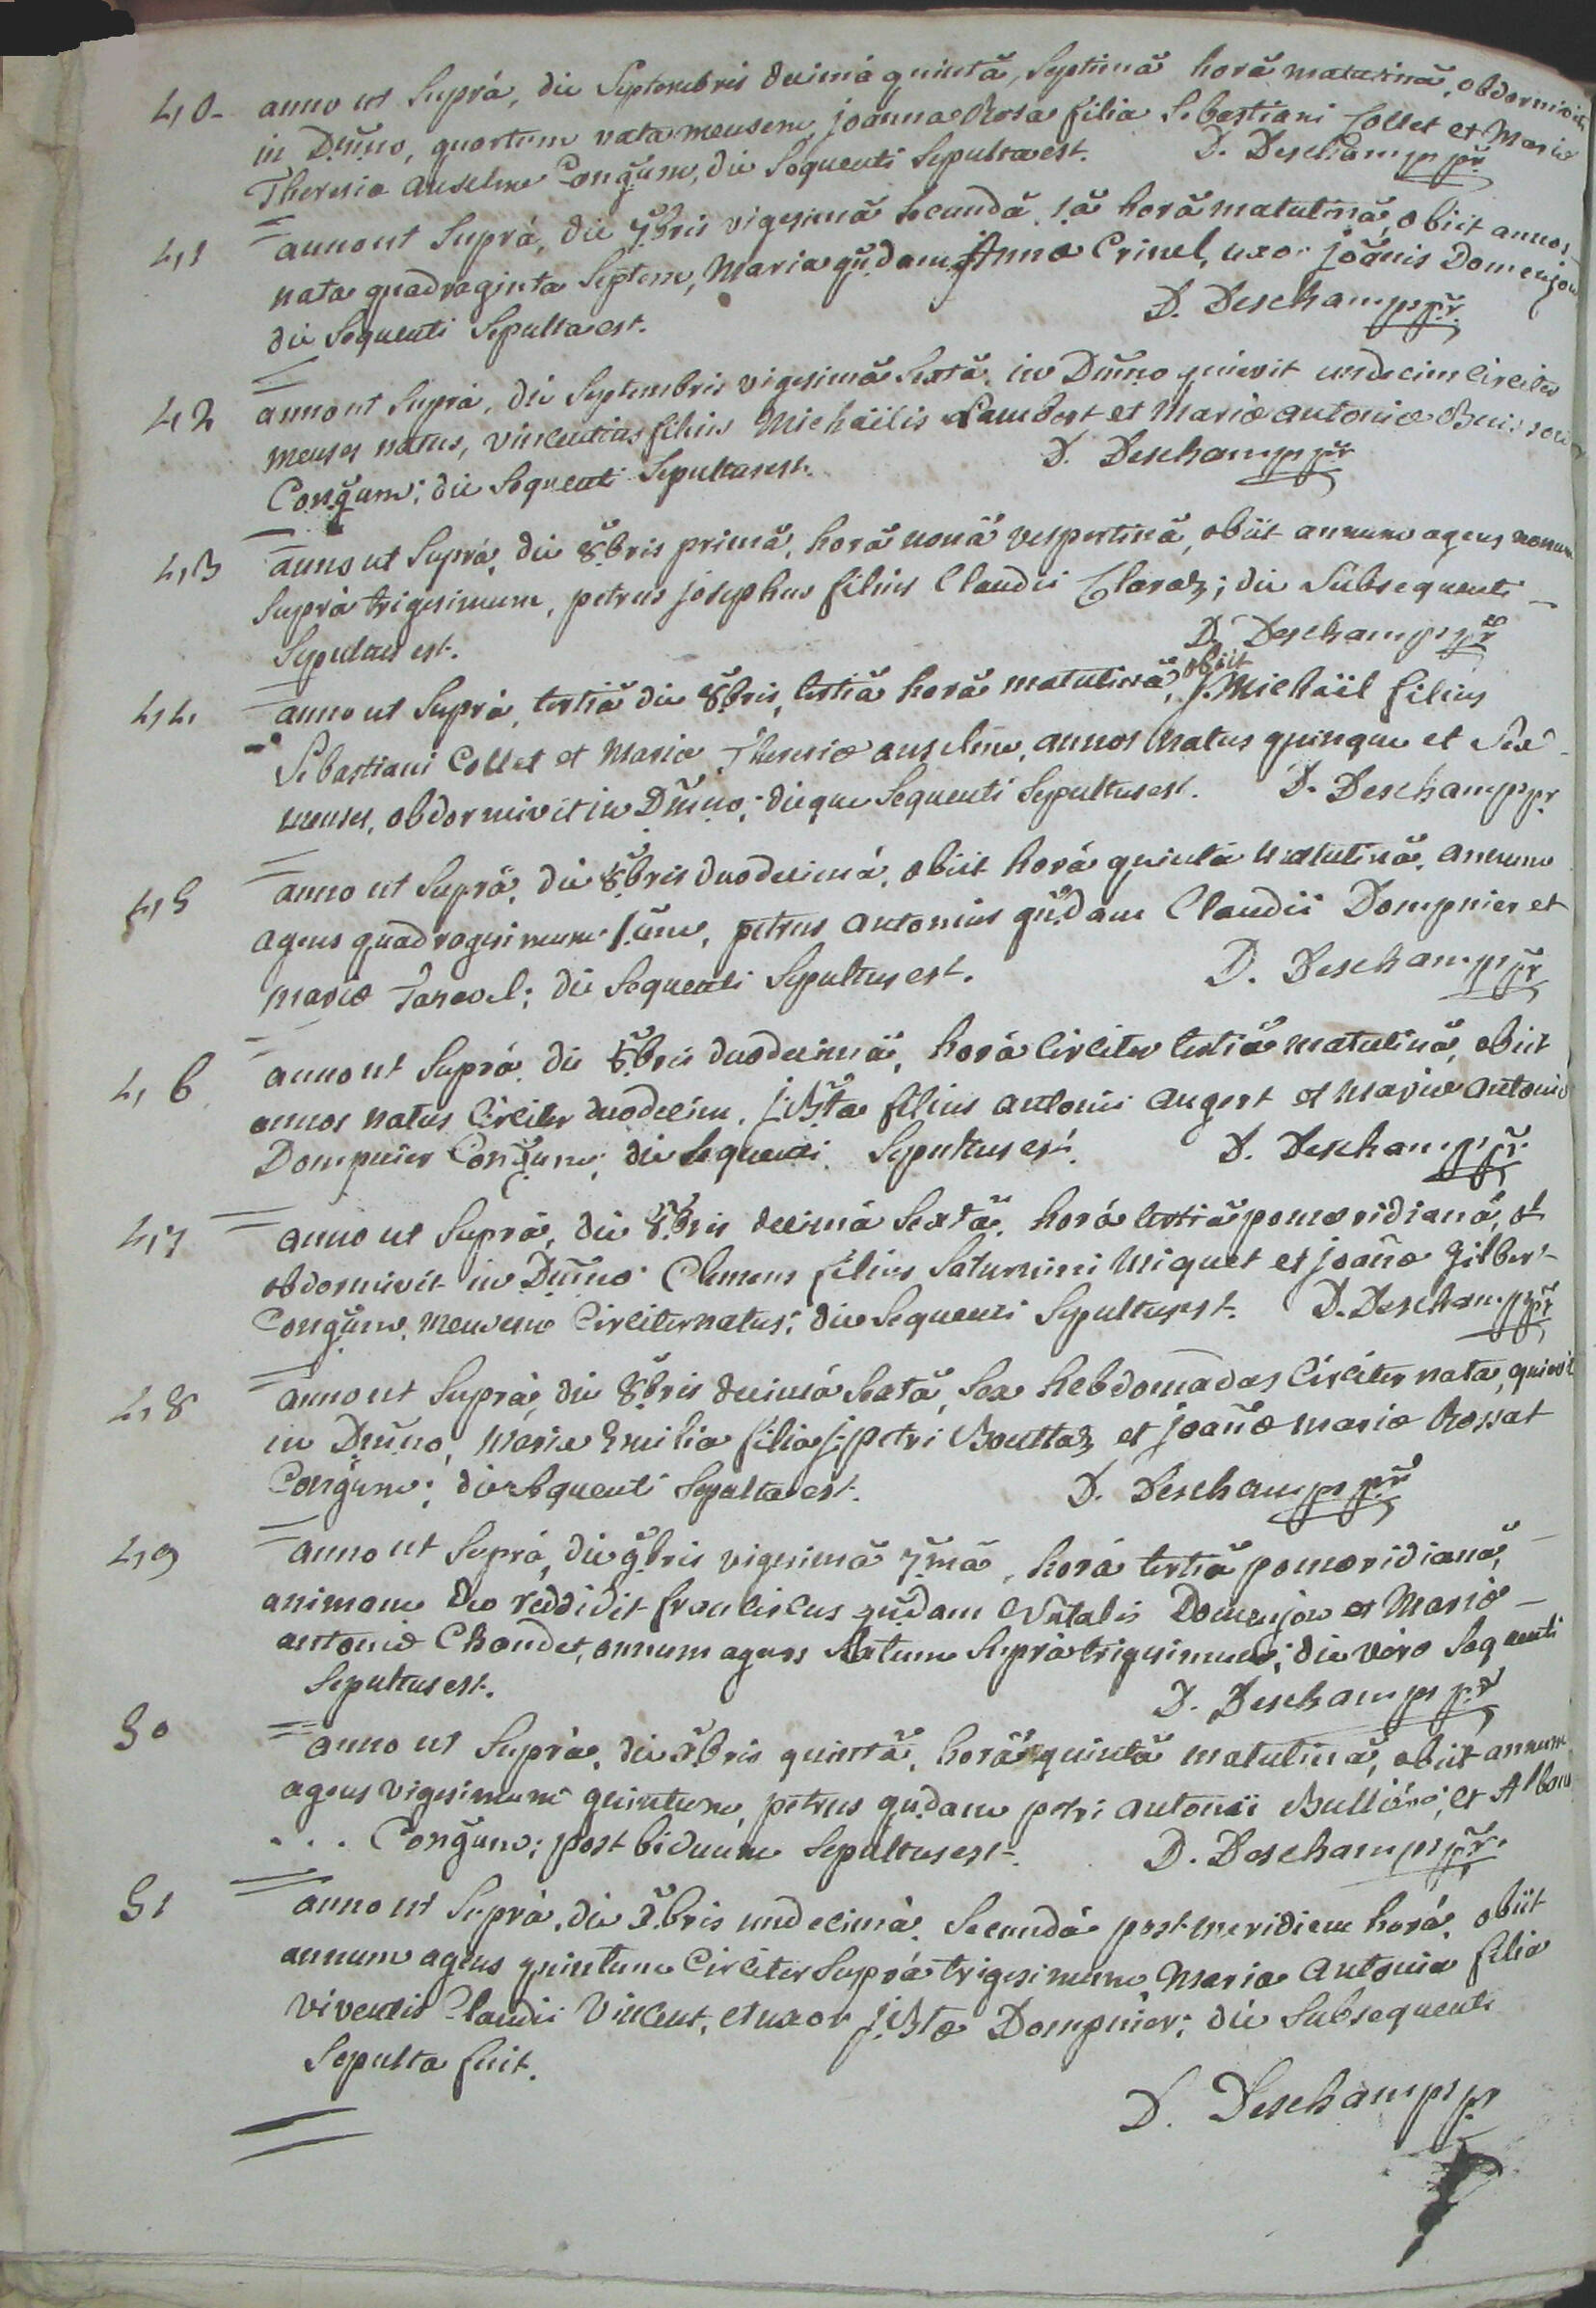 40- anno ut Suprà, die Septembris decimâ quintâ, Septimâ horâ matutinâ, obdormivit
in Dm̃no, quartum nata mensem, joanna Rosa filia Sebastiani Collet et Mariæ
Theresiæ anselme Conğum, die Sequenti Sepulta est. D. Deschamps pr̃
41 anno ut Suprà, die 7.bris vigesimâ Secundâ, 1.â horâ matutinâ, obiit annos
nata quadraginta Septem, Maria qũdam Annæ Crinel, uxor joãnis Domenjon
die Sequenti Sepulta est. D. Deschamps pr̃.
42 anno ut Suprà, die Septembris vigesimâ Sextâ, in Dm̃no quievit undecim circiter
menses natus, vincentius filius Michäilis Lambert et Mariæ antoniæ
Conğum; die Sequenti Sepultus est. D. Deschamps pr̃
43 anno ut Suprà, die 8.bris primâ, horâ nonâ vespertinâ, obiit annum agens nonum
Suprà trigesimum, petrus josephus filius Claudii Claraz; die Subsequenti
Sepultus est. D. Deschamps pr̃
44 anno ut Suprà, tertiâ die 8.bris, tertiâ horâ matutinâ, obiit j. Michäil filius
Sebastiani Collet et Mariæ Theresiæ anselme, annos natus quinque et Sex
menses, obdormivit in Dm̃no; dieque Sequenti Sepultus est. D. Deschamps pr
45 anno ut Suprà, die 8.bris duodecimâ, obiit horâ quintâ matutinâ, annum
agens quadragesimum 1.um, petrus antonius qũdam Claudii Dompnier et
mariæ ; die Sequenti Sepultus est. D. Deschamps pr̃
46 anno ut Suprà, die 8.bris duodecimâ, horâ circiter tertiâ matutinâ, obiit
annos natus circiter duodecim, j. Bta filius antonii augert et Mariæ antoniæ
Dompnier Conğum; die Sequenti Sepultus est. D. Deschamps pr̃.
47 anno ut Suprà, die 8.bris decimâ Sextâ, horâ tertiâ pomæridianâ, et
obdormivit in Dm̃no Clemens filius Saturnini Miquet et joañæ gilbert
Conğum, mensem Circiter natus; die Sequenti Sepultus est. D. Deschamps pr̃
48 anno ut Suprà, die 8.bris decimâ Sextâ, Sex hebdomadas Circiter nata, quievit
in Dm̃no, Maria Emilia filia j. petri Bouttaz et joañæ mariæ Rossat
Conğum; die Sequenti Sepulta est. D. Deschamps pr̃
49 anno ut Suprà, die 9.bris vigesimâ 7.mâ, horâ tertiâ pomæridianâ,
animam Deo reddidit franciscus qũdam Natalis Domenjon et Mariæ
antoniæ Chaudet, annum agens Suprà trigesimum; die vero Sequenti
Sepultus est. D. Deschamps pr̃
50 anno ut Suprà, die X.bris quintâ, horâ quintâ matutinâ, obiit annum
agens vigesimum quintum, petrus qũdam petri antonii ; et
. . . Conğum; post biduum Sepultus est. D. Deschamps pr̃.
51 anno ut Suprà, die X.bris undecimâ, Secundâ post meridiem horâ, obiit
annum agens quintum Circiter Suprà trigesimum, Maria Antonia filia
viventis Claudii Vincent, et uxor j. Btæ Dompnier; die Subsequenti
Sepulta fuit.
D. Deschamps pr